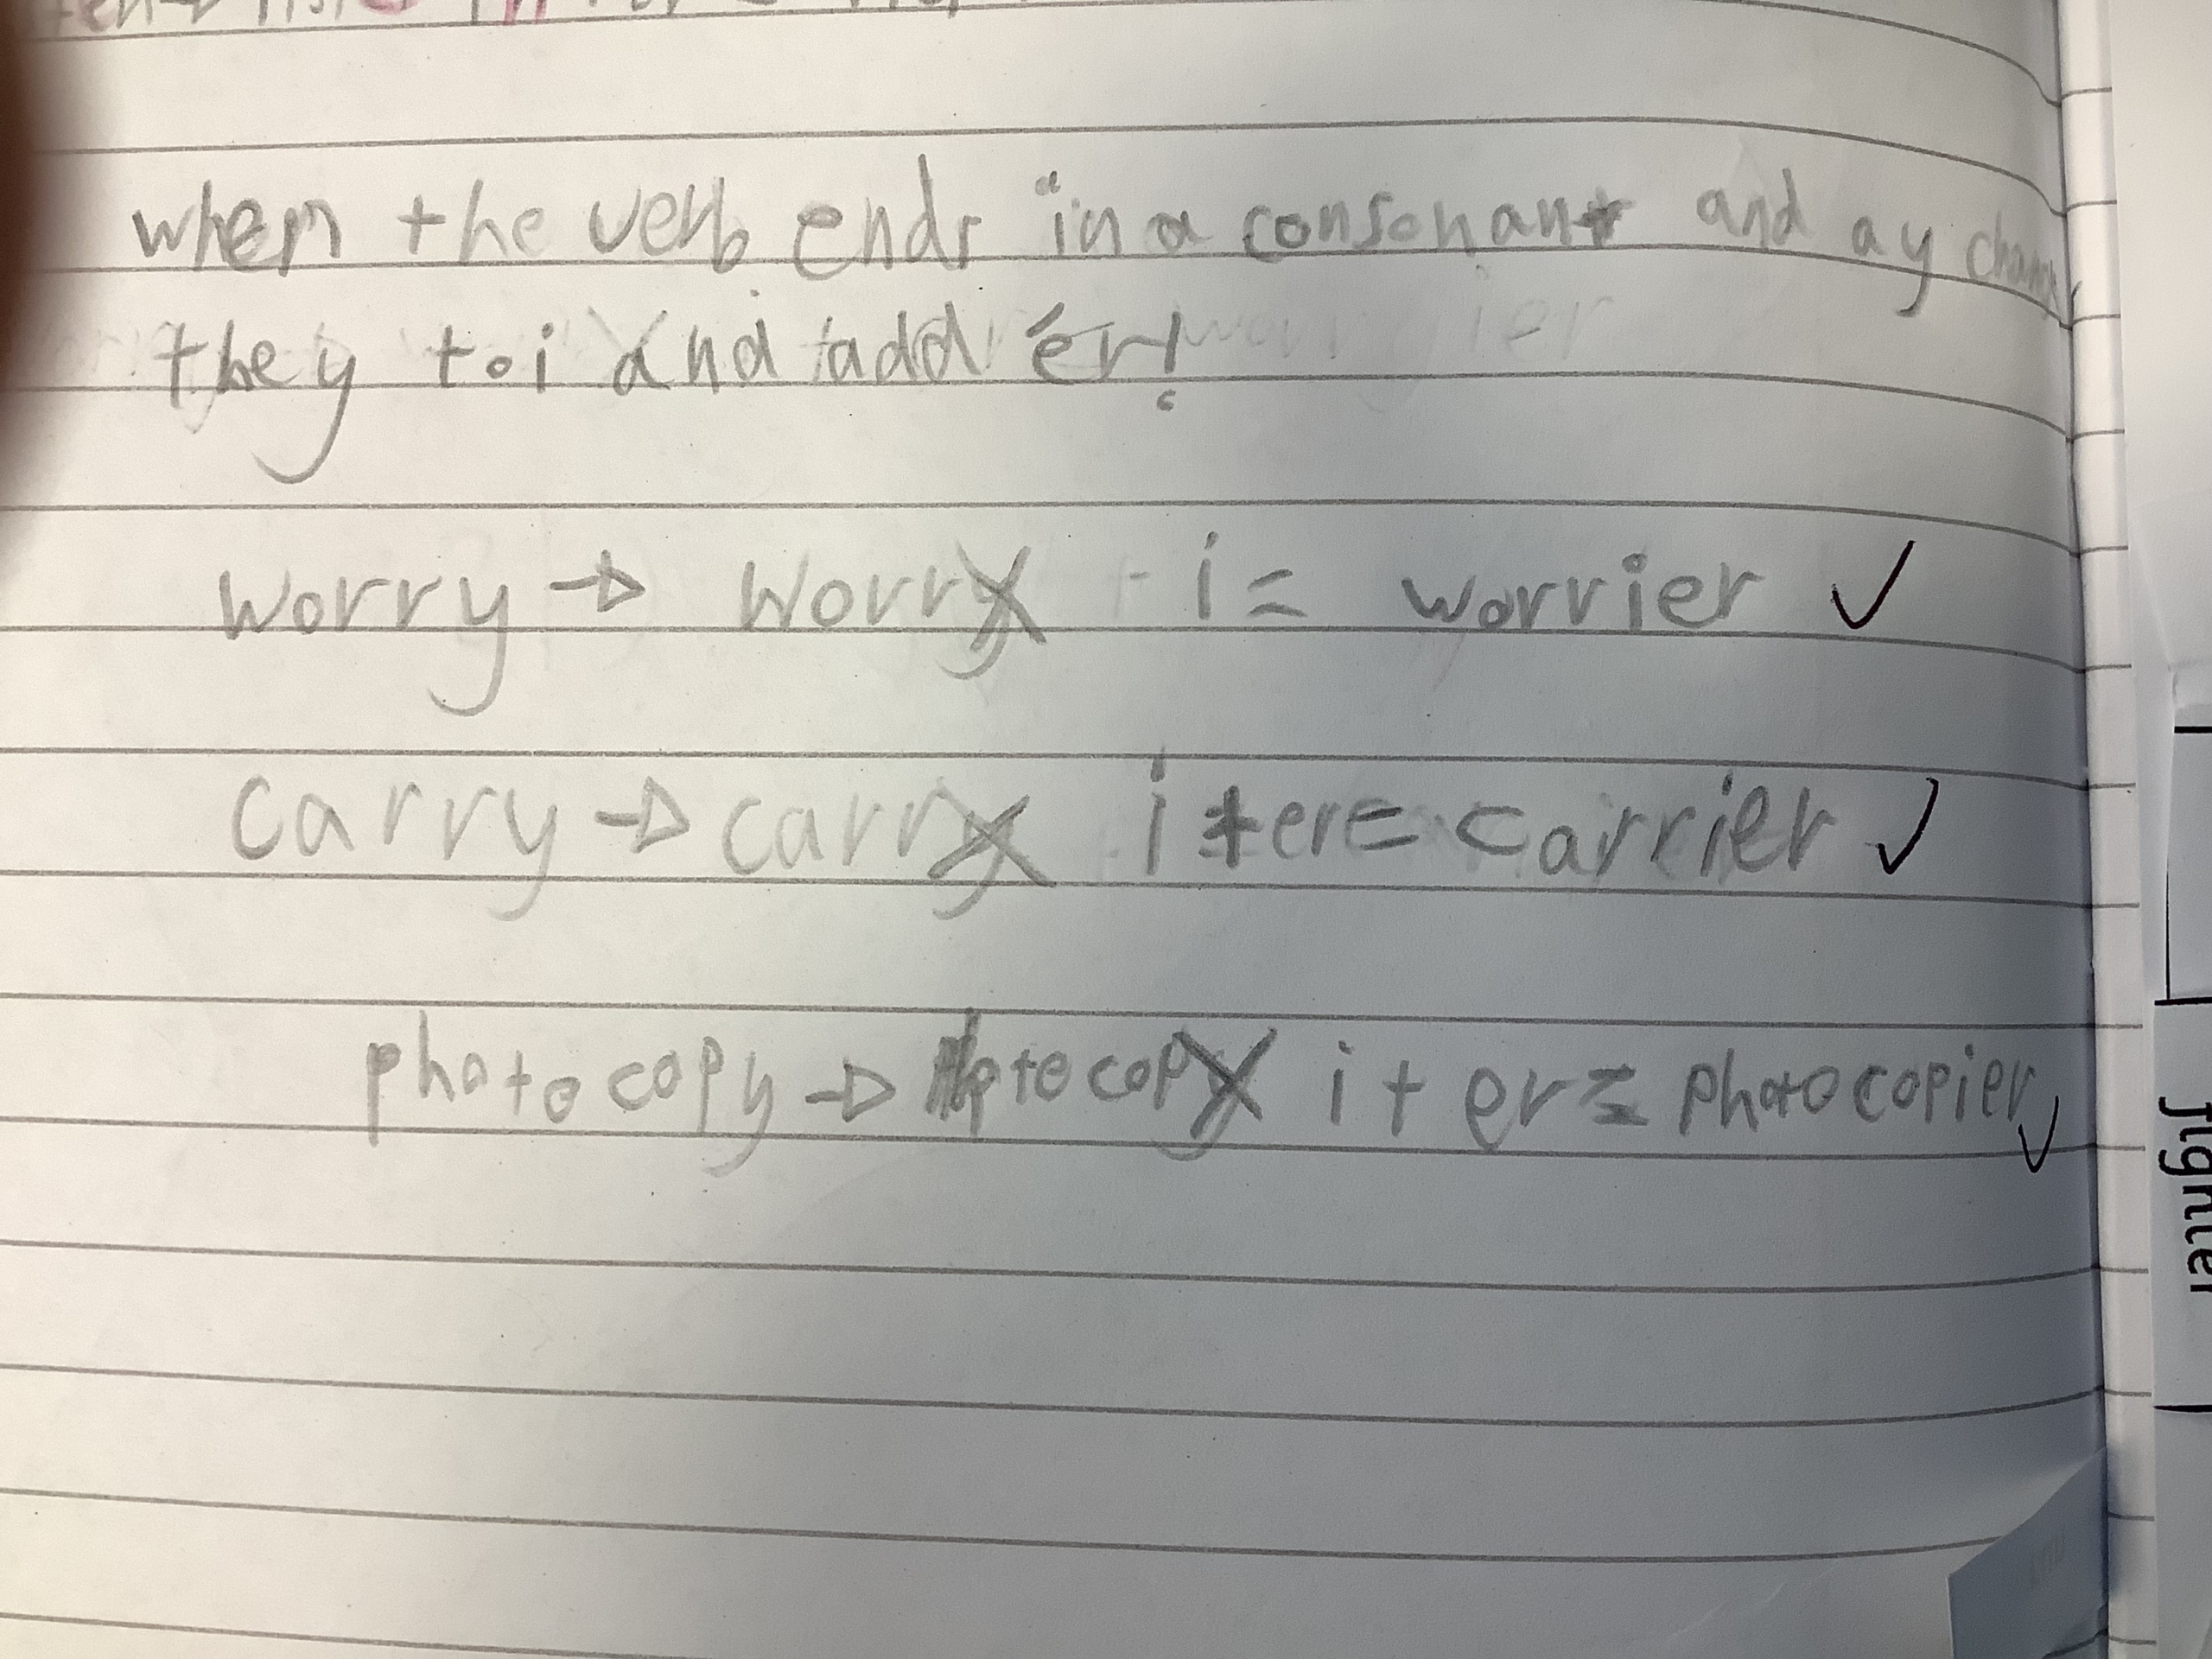 when the verb ends in a consonant and a y change
the y to i and add er!
worry → worry i = worrier ✓
carry → carry i + er = carrier ✓
photocopy → photocopy i + er = photocopier ✓
fighter